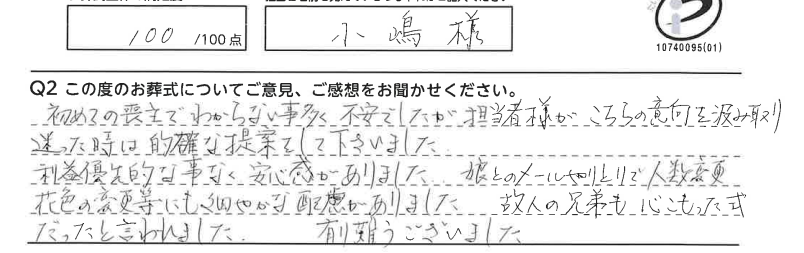 100 /100点
小嶋 様
10740095(01)
Q2 この度のお葬式についてご意見、ご感想をお聞かせください。
初めての喪主でわからない事多く 不安でしたが 担当者様が こちらの意向を汲み取り
迷った時は 的確な提案をして下さいました
利益優先的な事なく 安心感がありました 娘とのメールやりとりで人数変更
花色の変更等にも細やかな配慮がありました 故人の兄弟も 心こもった式
だったと言われました. 有り難うございました